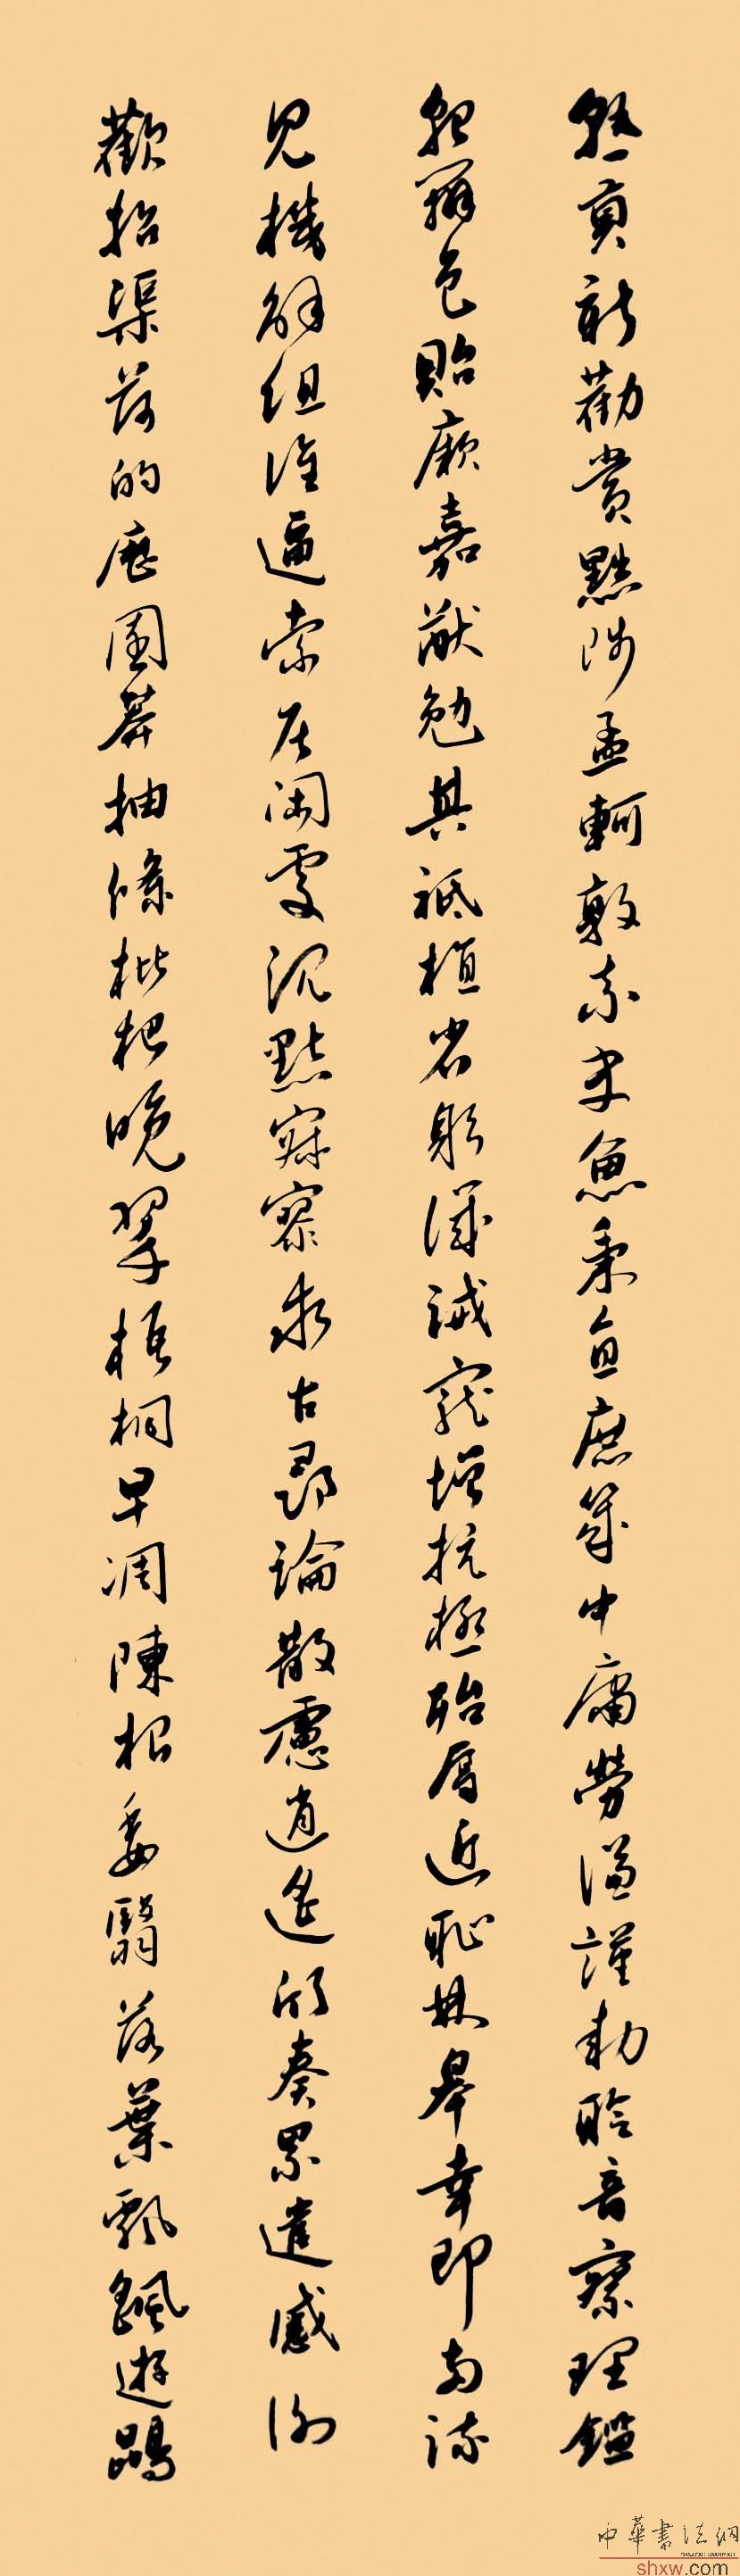 熟貢新勸賞黜陟孟軻敦素史魚秉直庶幾中庸勞謙謹勅聆音察理鑑
貌辨色貽厥嘉猷勉其祗植省躬譏誡寵增抗極殆辱近恥林皋幸即兩疏
見機解組誰逼索居閑處沉默寂寥求古尋論散慮逍遙欣奏累遣慼謝
歡招渠荷的歷園莽抽條枇杷晚翠梧桐早凋陳根委翳落葉飄颻遊鵾
中華書法網
shxw.com